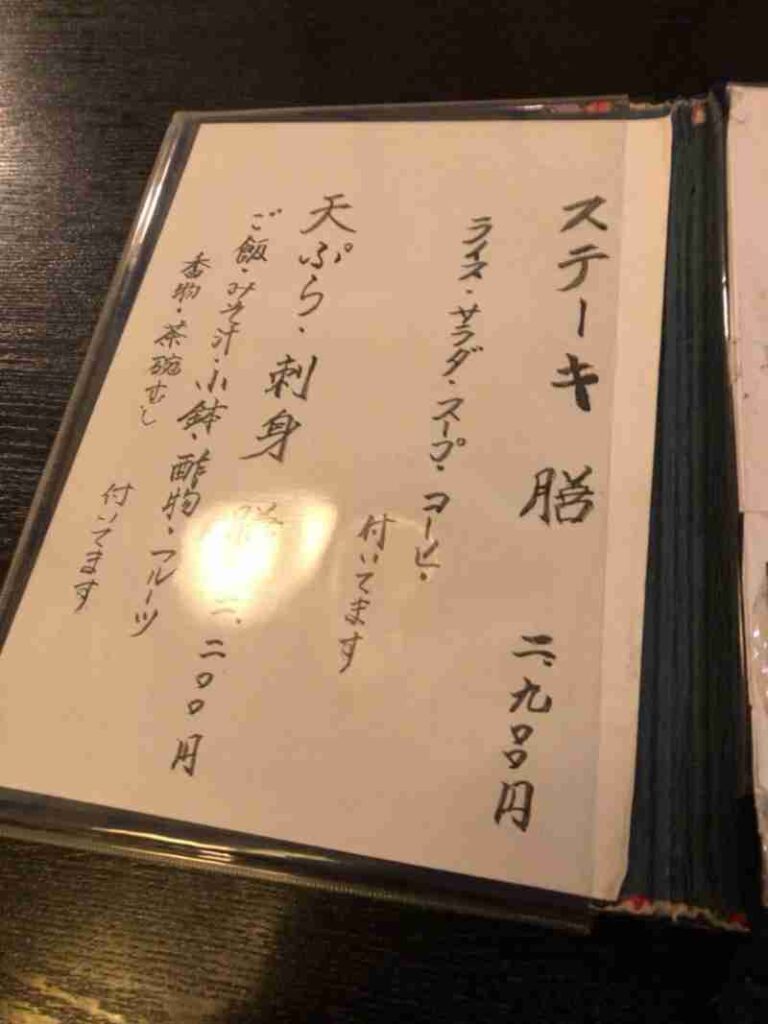 ステーキ膳 二、九〇〇円
ライス・サラダ・スープ・コーヒ・
付いてます
天ぷら・刺身膳 二、二〇〇円
ご飯・みそ汁・小鉢・酢物・フルーツ
香物・茶碗むし
付いてます